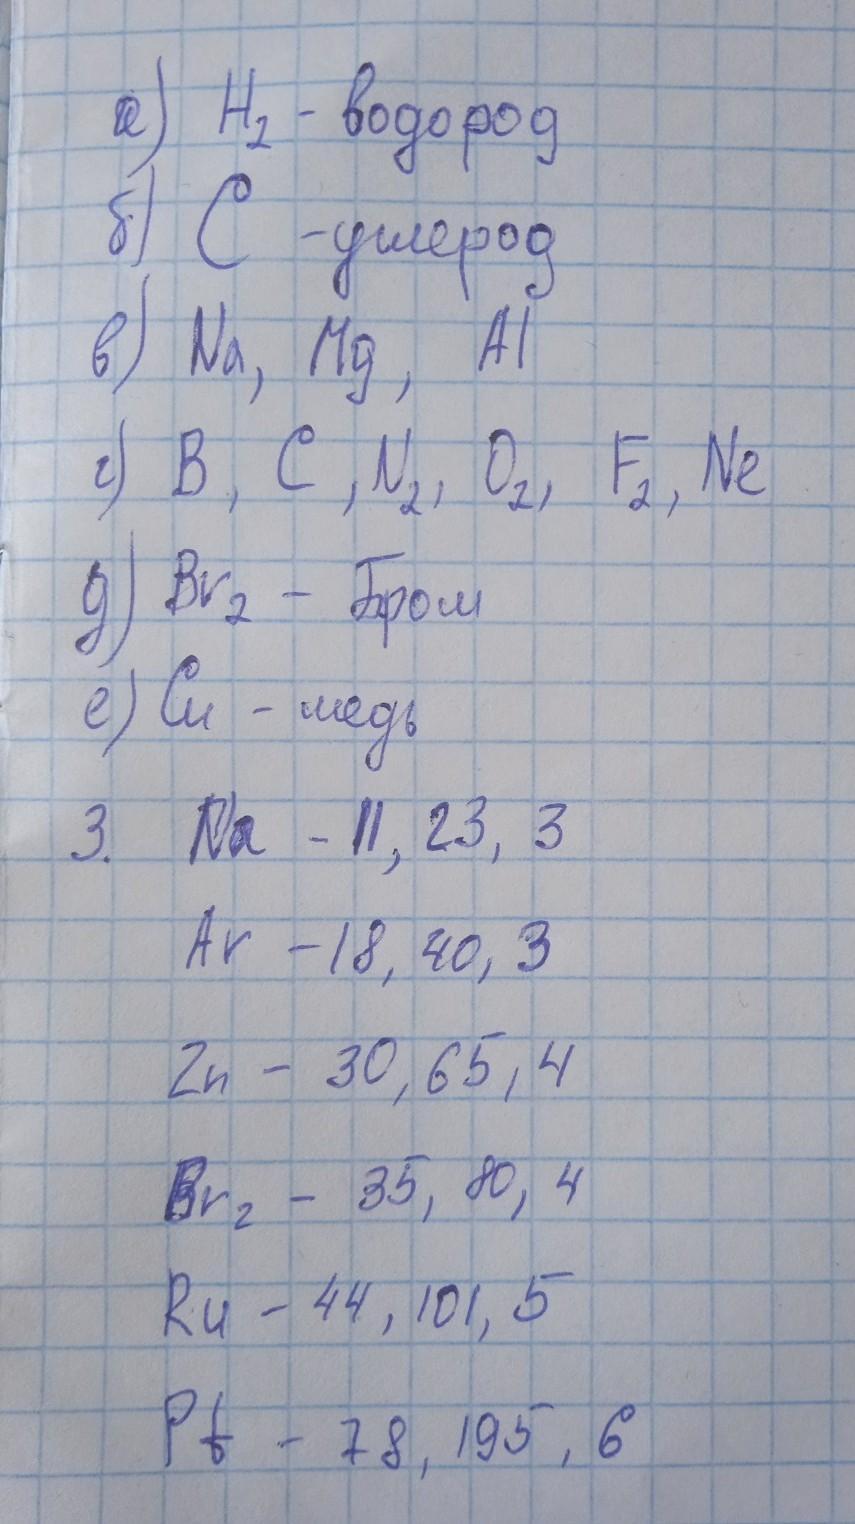 а) H₂ - водород
б) C - углерод
в) Na, Mg, Al
г) B, C, N₂, O₂, F₂, Ne
д) Br₂ - Бром
е) Cu - медь
3. Na - 11, 23, 3
Ar - 18, 40, 3
Zn - 30, 65, 4
Br₂ - 35, 80, 4
Ru - 44, 101, 5
Pt - 78, 195, 6